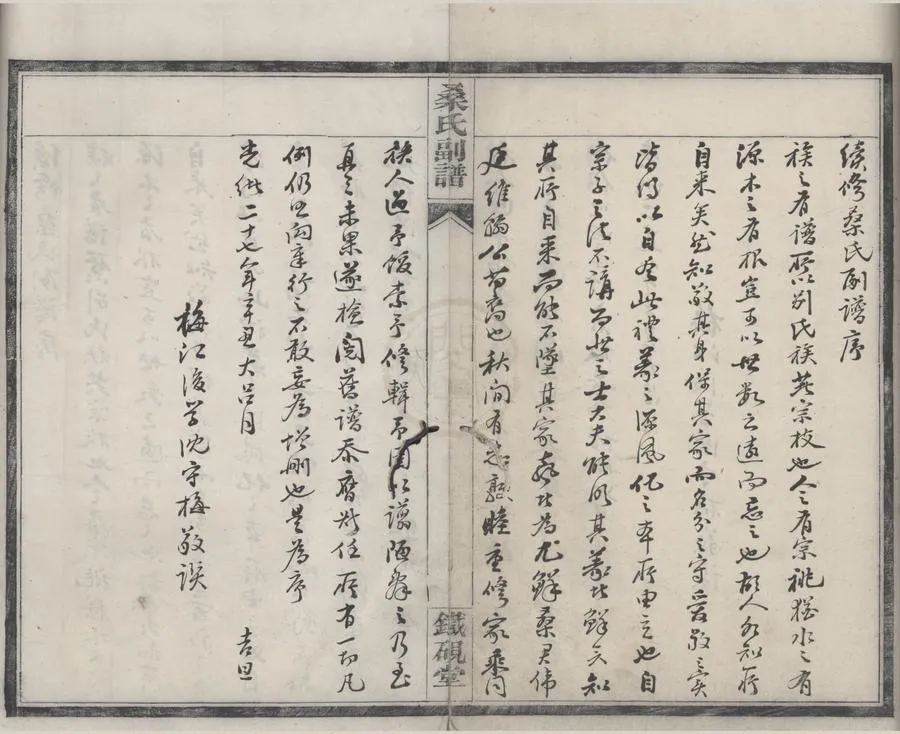 續修桑氏副譜序
族之有譜所以別氏族萃宗枝也人之有宗祧猶水之有
源木之有根豈可以世數之遠而忘之也故人知所
自来矣然知敬其身保其家而名分之守愛敬之實
皆得以自盡此禮義之源風化之本所由立也自
宗子之法不講而世之士大夫能明其義者鮮矣知
其所自来而能不墜其家聲者為尤鮮桑君偉
廷維翰公苗裔也秋間有志敦睦重修家乘同
族人過予飯索予修輯予固以譾陋辭之乃至
再之未果遂檢閱舊譜忝膺斯任所有一切凡
例仍照向章行之不敢妄為增刪也是為序
光緒二十七年辛丑大呂月 吉旦
梅江後學沈守梅敬譔
桑氏副譜
鐵硯堂